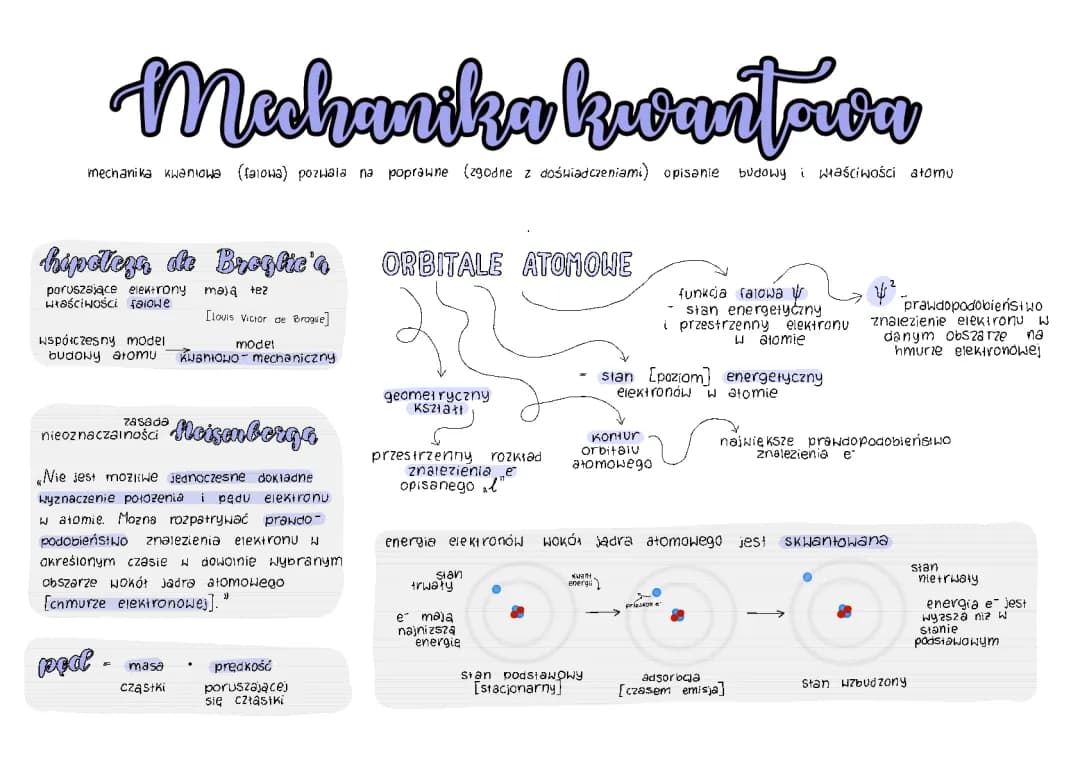 Mechanika kwantowa
mechanika kwantowa (falowa) pozwala na poprawne (zgodne z doświadczeniami) opisanie budowy i właściwości atomu
hipoteza de Broglie'a
poruszające elektrony mają też
właściwości falowe
[Louis Victor de Broglie]
współczesny model budowy atomu → model kwantowo-mechaniczny
zasada
nieoznaczalności Heisenberga
„Nie jest możliwe jednoczesne dokładne
wyznaczenie położenia i pędu elektronu
w atomie. Można rozpatrywać prawdo-
podobieństwo znalezienia elektronu w
określonym czasie w dowolnie wybranym
obszarze wokół jądra atomowego
[chmurze elektronowej]."
pęd = masa • prędkość
cząstki poruszającej
się cząstki
ORBITALE ATOMOWE
funkcja falowa ψ
- stan energetyczny
i przestrzenny elektronu
w atomie
ψ²
prawdopodobieństwo
znalezienie elektronu w
danym obszarze na
hmurze elektronowej
- stan [poziom] energetyczny
elektronów w atomie
geometryczny
kształt
przestrzenny rozkład
znalezienia „e⁻
opisanego „l"
kontur
orbitalu
atomowego
największe prawdopodobieństwo
znalezienia e⁻
energia elektronów wokół jądra atomowego jest skwantowana
stan
trwały
e⁻ mają
najniższą
energię
stan podstawowy
[stacjonarny]
kwant
energii
przeskok e⁻
adsorbcja
[czasem emisja]
stan wzbudzony
stan
nietrwały
energia e⁻ jest
wyższa niż w
stanie
podstawowym